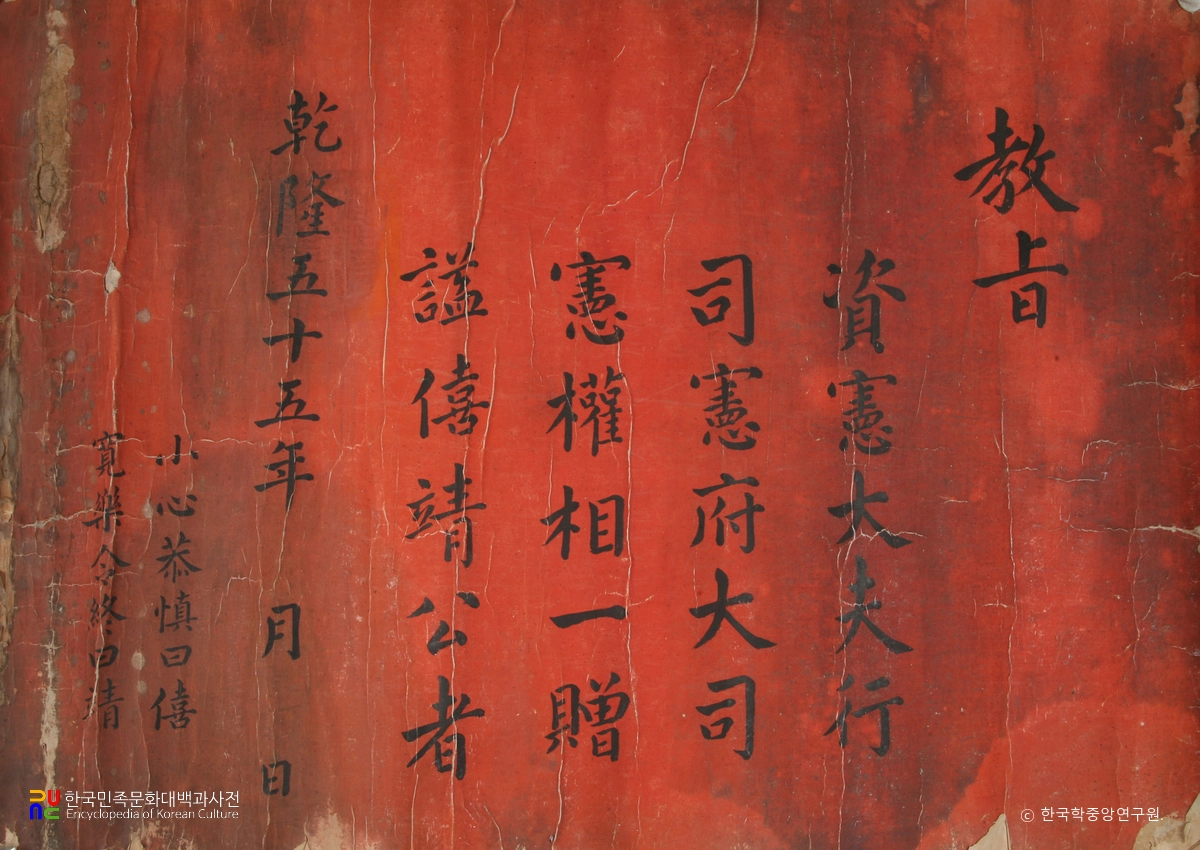 敎旨
資憲大夫行
司憲府大司
憲權相一贈
謚僖靖公者
乾隆五十五年 月 日
小心恭慎曰僖
寬樂令終曰靖
한국민족문화대백과사전
Encyclopedia of Korean Culture
ⓒ 한국학중앙연구원.